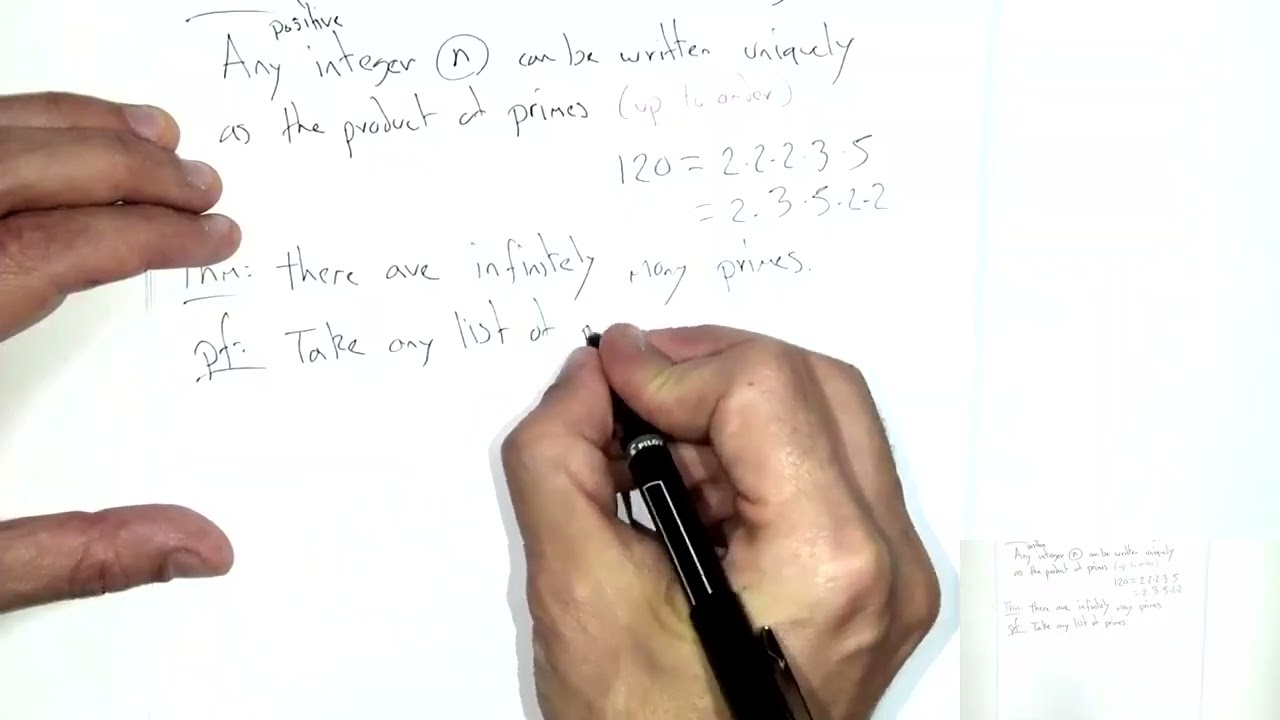 positive
Any integer n can be written uniquely
as the product of primes (up to order)
120 = 2·2·2·3·5
= 2·3·5·2·2
Thm: there are infinitely many primes.
pf: Take any list of p
PILOT
positive
Any integer n can be written uniquely
as the product of primes (up to order)
120 = 2·2·2·3·5
= 2·3·5·2·2
Thm: there are infinitely many primes
pf: Take any list of primes: